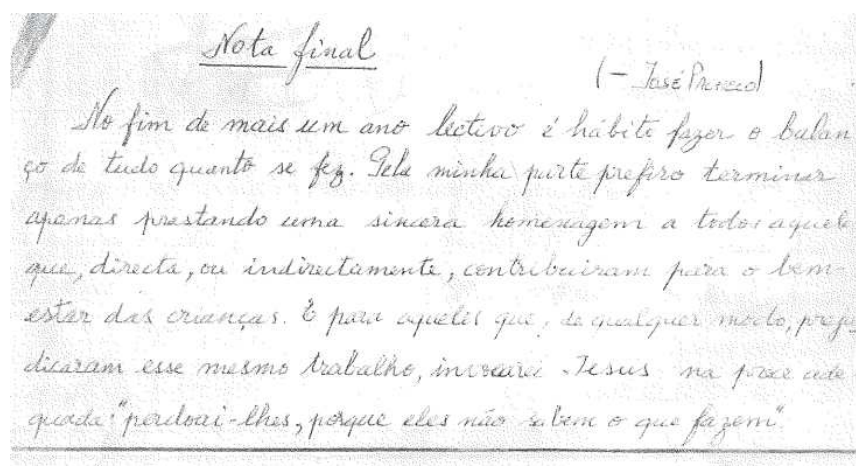 Nota final
(- José
No fim de mais um ano lectivo é hábito fazer o balan
ço de tudo quanto se fez. Pela minha parte prefiro terminar
apenas prestando uma sincera homenagem a todos aquele
que, directa, ou indirectamente, contribuiram para o bem-
estar das crianças. E para aqueles que, de qualquer modo, preju
dicaram esse mesmo trabalho, invocarei Jesus na prece ade
quada: "perdoai-lhes, porque eles não sabem o que fazem".